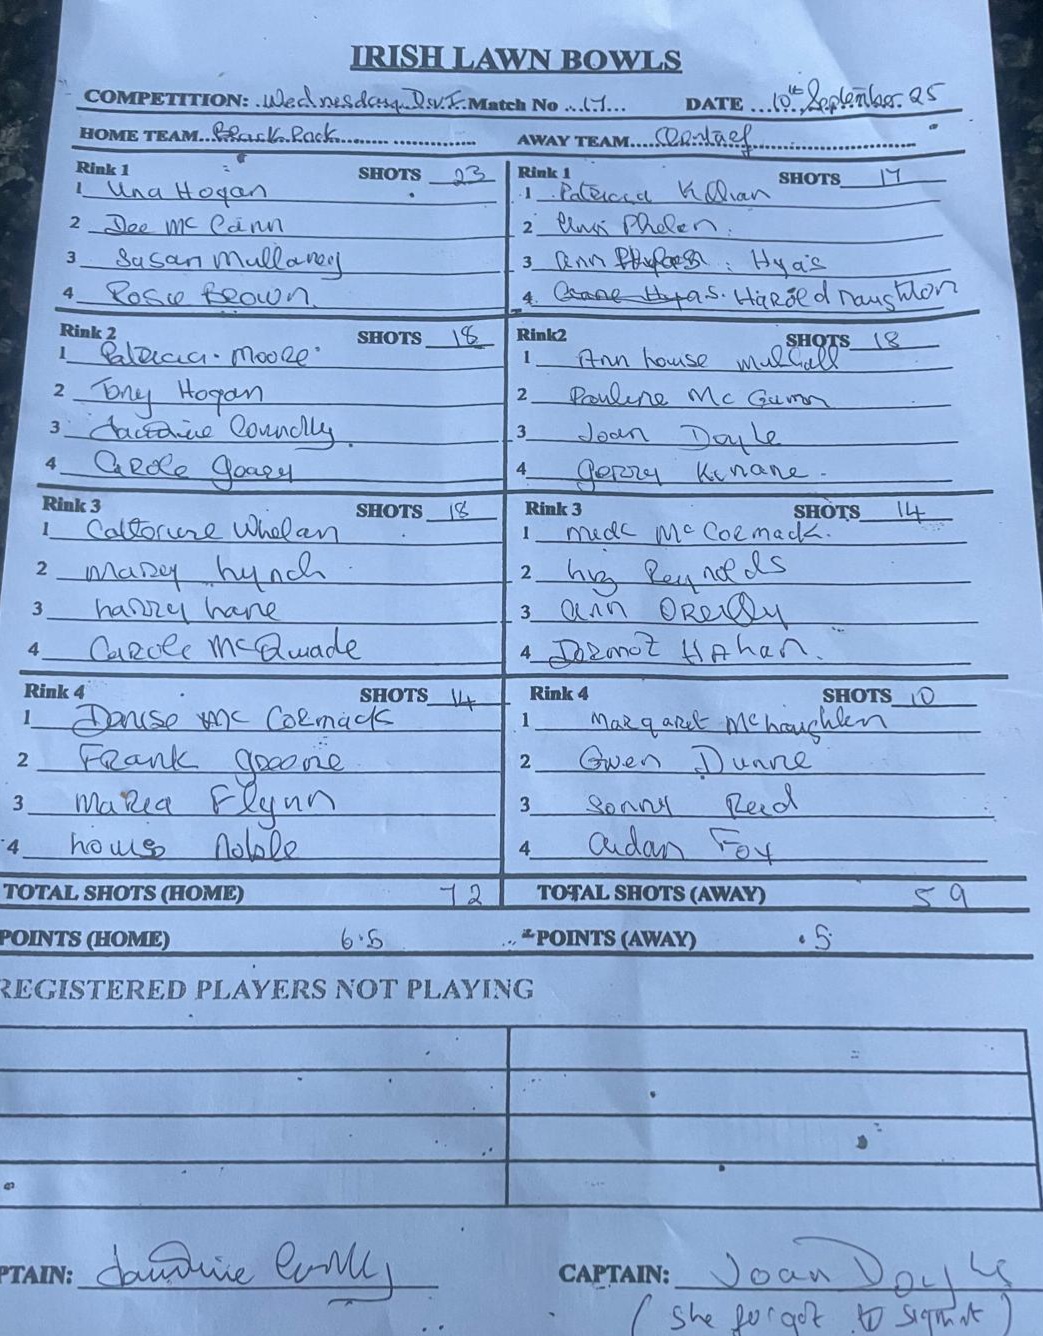 IRISH LAWN BOWLS
COMPETITION: Wednesday Div I. Match No ..17... DATE ...10th September. 25
HOME TEAM.. Black Rock....... ............... AWAY TEAM..... Clontarf..............................
Rink 1 SHOTS 23 Rink 1 SHOTS 17
1 Una Hogan 1 Patricia Killian
2 Dee Mc Cann 2 Phelan.
3 Susan Mullaney 3 Ann Hyas
4 Rosie Brown. 4. Harold naughton
Rink 2 SHOTS 18 Rink2 SHOTS 18
1 Patricia. Moore 1 Ann house Mulhall
2 Tony Hogan 2 Pauline Mc Gunn
3 Connolly. 3 Joan Doyle
4 Carole goary 4 gerry Kinane.
Rink 3 SHOTS 18 Rink 3 SHOTS 14
1 Whelan 1 Mc Cormack.
2 Marey Lynch 2 Liz Reynolds
3 harry Lane 3 ann OReilly
4 Carole McQuade 4 Dermot HAhan.
Rink 4 SHOTS 14 Rink 4 SHOTS 10
1 Denise Mc Cormack 1 Margaret McLoughlen
2 Frank greene 2 Gwen Dunne
3 Maria Flynn 3 Sonny Reid
4 Louise Noble 4 Aidan Fox
TOTAL SHOTS (HOME) 72 TOTAL SHOTS (AWAY) 59
POINTS (HOME) 6.5 POINTS (AWAY) .5
REGISTERED PLAYERS NOT PLAYING
PTAIN: CAPTAIN: Joan Doyle
(she forgot to sign it)